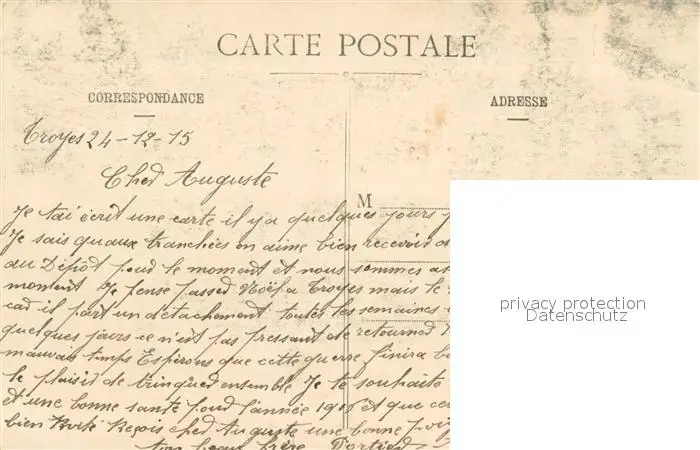 CARTE POSTALE
CORRESPONDANCE
ADRESSE
Troyes 24-12-15
Cher Auguste
M
Je tai écrit une carte il y a quelques jours
Je sais quaux tranchées on aime bien recevoir
au Dépôt pour le moment et nous sommes
moment Je pense passer Noël a Troyes mais le
car il part un détachement toutes les semaines
quelques jours ce n'est pas pressant de retourner
mauvais temps Espérons que cette guerre finira
le plaisir de trinquer ensemble Je te souhaite
et une bonne santé pour l'année 1916 et que
bien Reçois cher Auguste une bonne
ton beau frère
privacy protection
Datenschutz